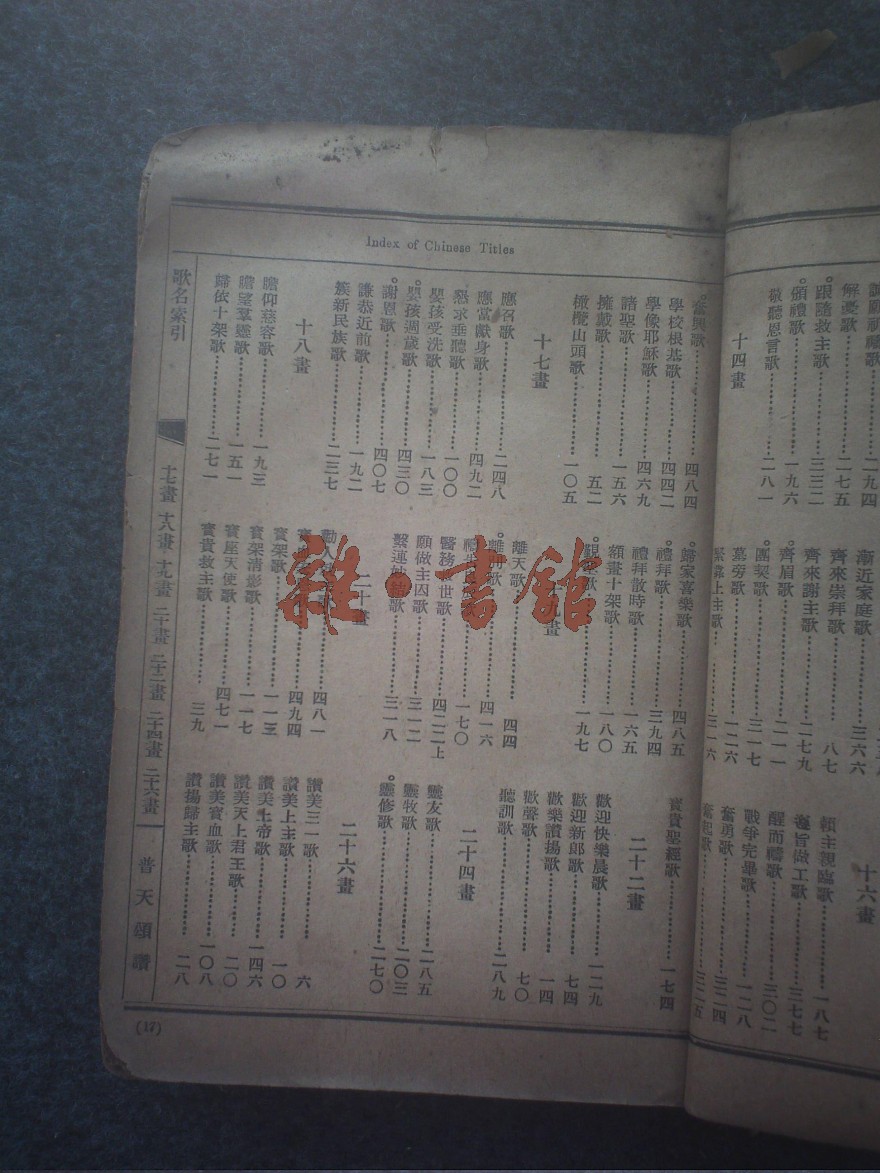 Index of Chinese Titles
歌名索引
十七畫 十八畫 十九畫 二十畫 二十二畫 二十四畫 二十六畫
普天頌讚
(17)
奮興歌 四八四
學校根基歌 四四二
學像耶穌歌 四六九
諸聖歌 一五六
擁戴歌 五二
橄欖山頭歌 一〇五
十七畫
應召歌 二四八
應當獻身歌 四九二
懇求垂聽歌 一〇〇
嬰孩受洗歌 一八三
嬰孩週歲歌 四三〇
謝恩歌 四〇七
謙恭近前歌 一九二
簇新民族歌 二三七
十八畫
瞻仰慈容歌 一九三
瞻望羣靈歌 一五一
歸依十架歌 二七一
歸家喜樂歌 四八五
禮拜歌 三九四
禮拜散時歌 一六五
額畫十架歌 一八〇
一九七
離天歌 四四
四一六
一七〇
醫務 世歌 四二二上
願做主囚歌 三一二
繫連 歌 三一八
二十畫
四八一
四九四
寶架歌 一一三
寶架清影歌 一一七
寶座天使歌 四七一
寶貴救主歌 三九
寶貴聖經歌 一七四
二十二畫
歡迎快樂晨歌 一二九
歡迎新郎歌 七四
歡樂讚揚歌 一四
歡聲歌 七〇
聽訓歌 二八九
二十四畫
靈友歌 二八五
靈牧歌 二〇三
靈修歌 二七〇
二十六畫
讚美三一歌 六
讚美上主歌 一〇
讚美上帝歌 一四六
讚美天上君王歌 二〇
讚美寶血歌 一〇八
讚揚歸主歌 二八
解憂歌 二七五
跟隨救主歌 三三二
頌禮歌 一九六
敬聽恩言歌 二八一
十四畫
漸近家庭歌 三六六
齊來崇拜歌 八七
齊來謝主歌 二七九
齊眉歌 二一一
團契歌 三一七
墓旁歌 一二六
緊靠上主歌 三一六
十六畫
賴主親臨歌 一八七
遵旨做工歌 三七七
醒而禱歌 三〇二
戰爭完畢歌 一二八
奮勇歌 三二四
奮起歌 三二五
雜·書館